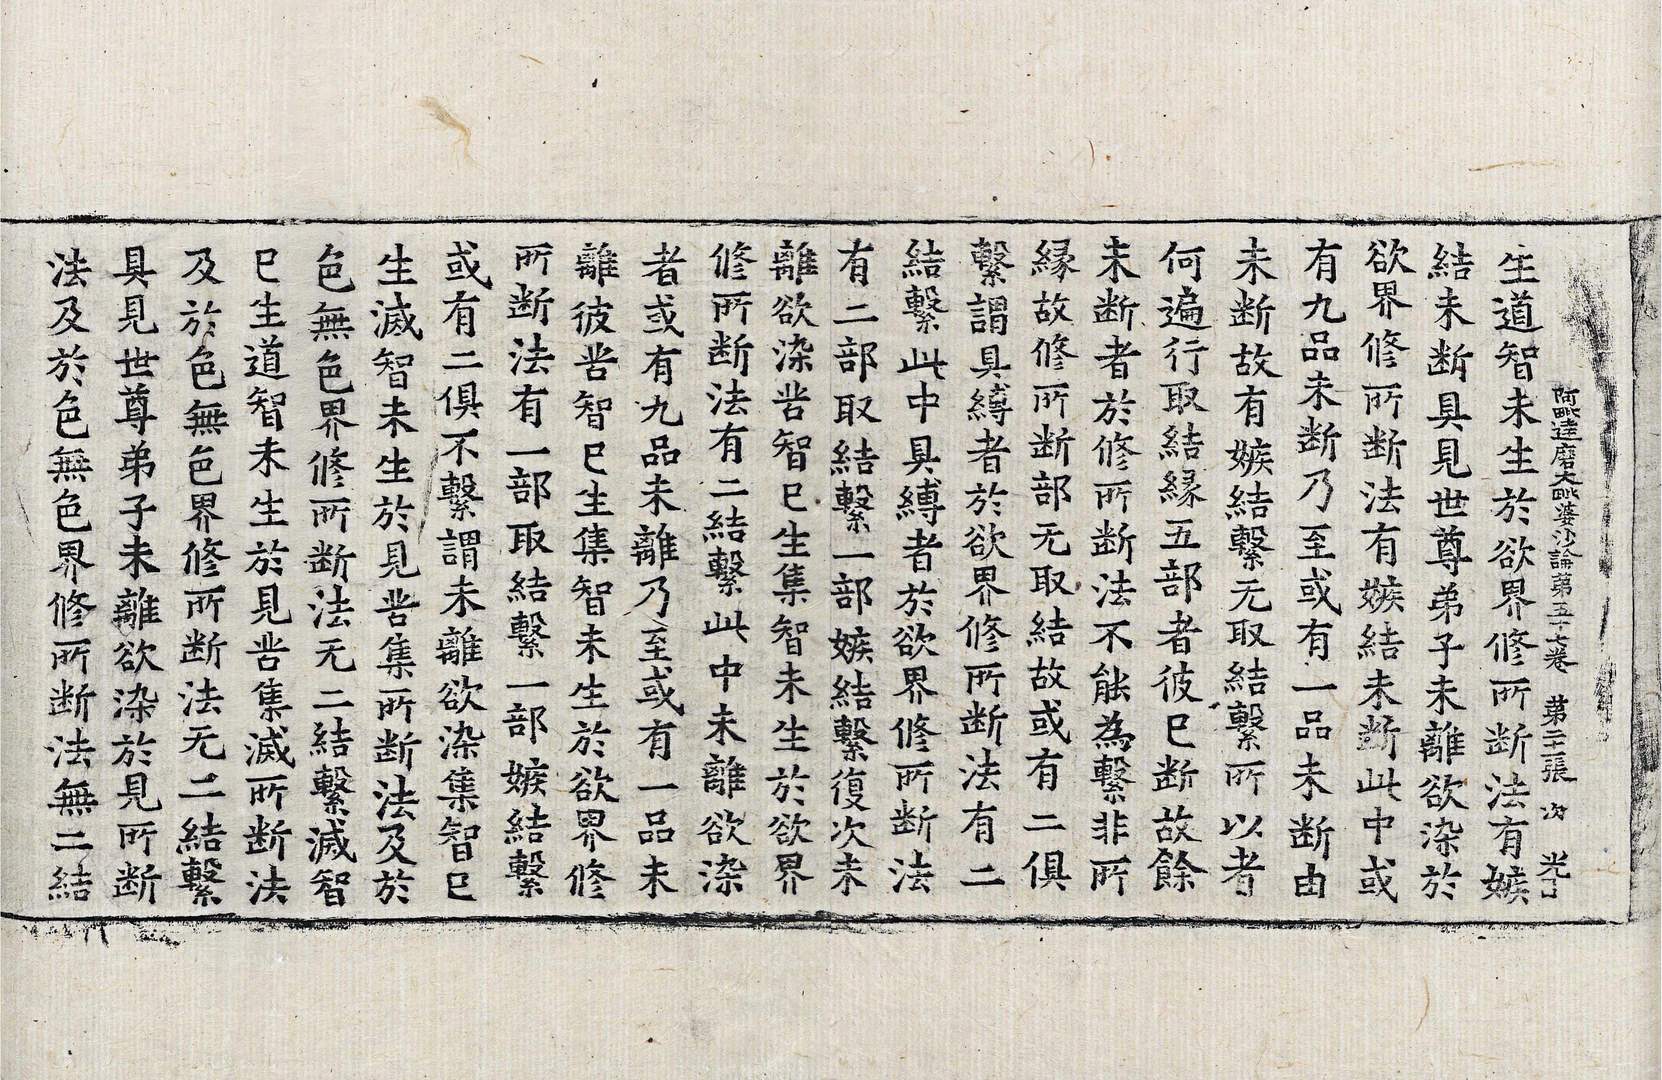 阿毗達磨大毗婆沙論第五十七卷　第二十張　次　光丁
生道智未生於欲界修所断法有嫉
結未断具見世尊弟子未離欲染於
欲界修所断法有嫉結未断此中或
有九品未断乃至或有一品未断由
未断故有嫉結繫无取結繫所以者
何遍行取結縁五部者彼巳断故餘
未断者於修所断法不能為繫非所
縁故修所断部无取結故或有二俱
繫謂具縛者於欲界修所断法有二
結繫此中具縛者於欲界修所断法
有二部取結繫一部嫉結繫復次未
離欲染苦智巳生集智未生於欲界
修所断法有二結繫此中未離欲染
者或有九品未離乃至或有一品未
離彼苦智巳生集智未生於欲界修
所断法有一部取結繫一部嫉結繫
或有二俱不繫謂未離欲染集智巳
生滅智未生於見苦集所断法及於
色無色界修所断法无二結繫滅智
巳生道智未生於見苦集滅所断法
及於色無色界修所断法无二結繫
具見世尊弟子未離欲染於見所断
法及於色無色界修所断法無二結